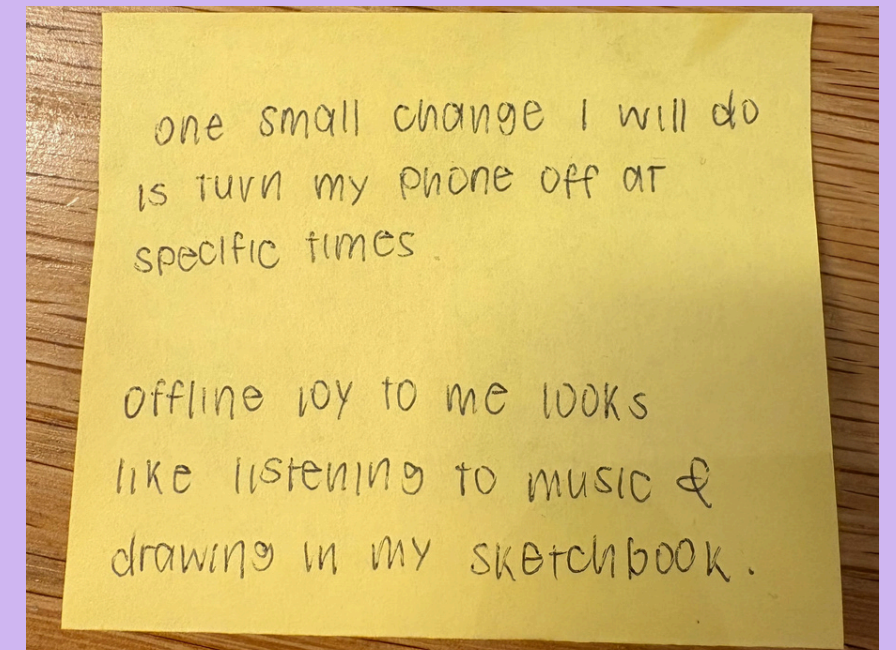 one small change I will do
is turn my phone off at
specific times
offline joy to me looks
like listening to music &
drawing in my sketchbook.